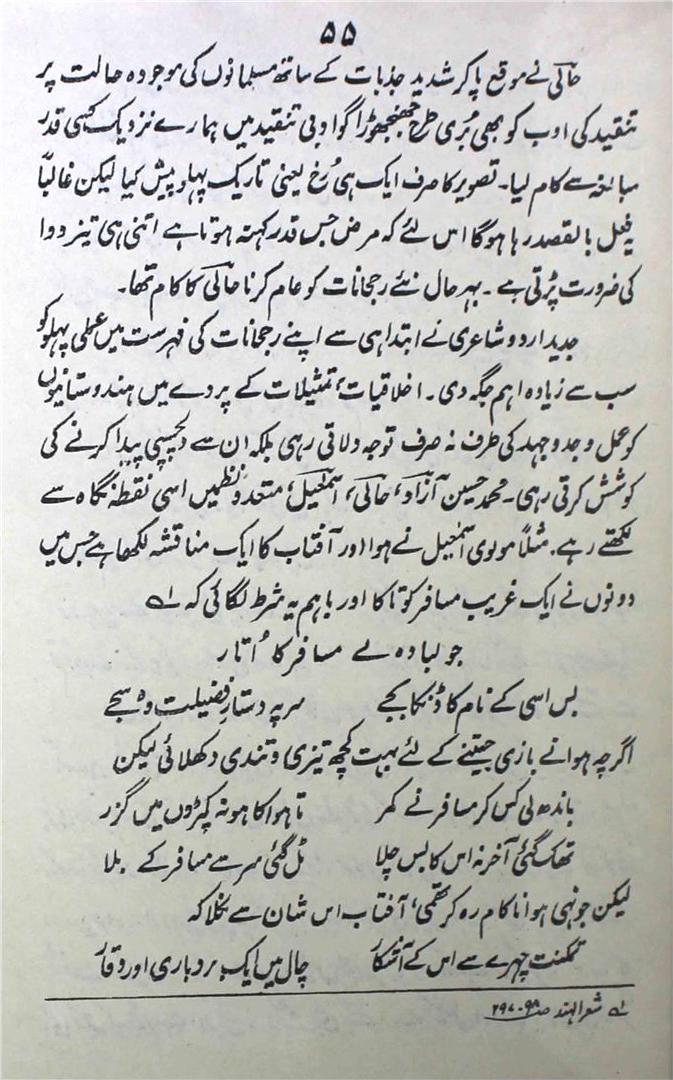 ۵۵
حالی نے موقع پا کر شدید جذبات کے ساتھ مسلمانوں کی موجودہ حالت پر
تنقید کی ادب کو بھی بُری طرح جھنجھوڑا گو ادبی تنقید میں ہمارے نزدیک کسی قدر
مبالغہ سے کام لیا۔ تصویر کا صرف ایک ہی رُخ یعنی تاریک پہلو پیش کیا لیکن غالباً
یہ فعل بالقصد رہا ہوگا اس لئے کہ مرض جس قدر کہنہ ہوتا ہے اتنی ہی تیز دوا
کی ضرورت پڑتی ہے۔ بہر حال نئے رجحانات کو عام کرنا حالی کا کام تھا۔
جدید اردو شاعری نے ابتدا ہی سے اپنے رجحانات کی فہرست میں عملی پہلو کو
سب سے زیادہ اہم جگہ دی۔ اخلاقیات، تمثیلات کے پردے میں ہندوستانیوں
کو عمل و جد و جہد کی طرف نہ صرف توجہ دلاتی رہی بلکہ ان سے دلچسپی پیدا کرنے کی
کوشش کرتی رہی۔ محمد حسین آزاد، حالی، اسمٰعیل، متعدد نظمیں اسی نقطۂ نگاہ سے
لکھتے رہے۔ مثلاً مولوی اسمٰعیل نے ہوا اور آفتاب کا ایک مناقشہ لکھا ہے جس میں
دونوں نے ایک غریب مسافر کو تاکا اور باہم یہ شرط لگائی کہ ؎۱
جو لبادہ لے مسافر کا اُتار
بس اسی کے نام کا ڈنکا بجے سر پہ دستارِ فضیلت وہ سجے
اگرچہ ہوا نے بازی جیتنے کے لئے بہت کچھ تیزی و تندی دکھلائی لیکن
باندھ لی کس کر مسافر نے کمر تا ہوا کا ہو نہ کپڑوں میں گزر
تھک گئی آخر نہ اس کا بس چلا ٹل گئی سر سے مسافر کے بلا
لیکن جونہی ہوا ناکام رہ کر تھمی، آفتاب اس شان سے نکلا کہ
تمکنت چہرے سے اس کے آشکار چال میں ایک بردباری اور وقار
؎۱ شعر الہند صـ ۹۸-۲۹۷